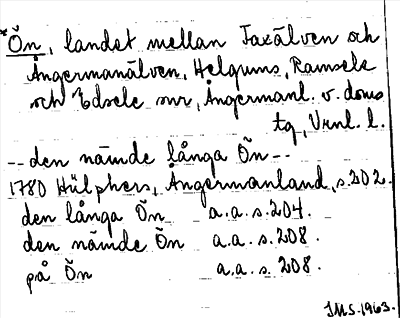 *Ön, landet mellan Faxälven och
Ångermanälven, Helgums, Ramsele
och Edsele snr, Ångermanl. v. doms
tg, Vrnl. l.
-- den nämde långa Ön --
1780 Hülphers, Ångermanland, s. 202.
den långa Ön a.a.s. 204.
den nämde Ön a.a.s. 208.
på Ön a.a.s. 208.
IMS. 1963.